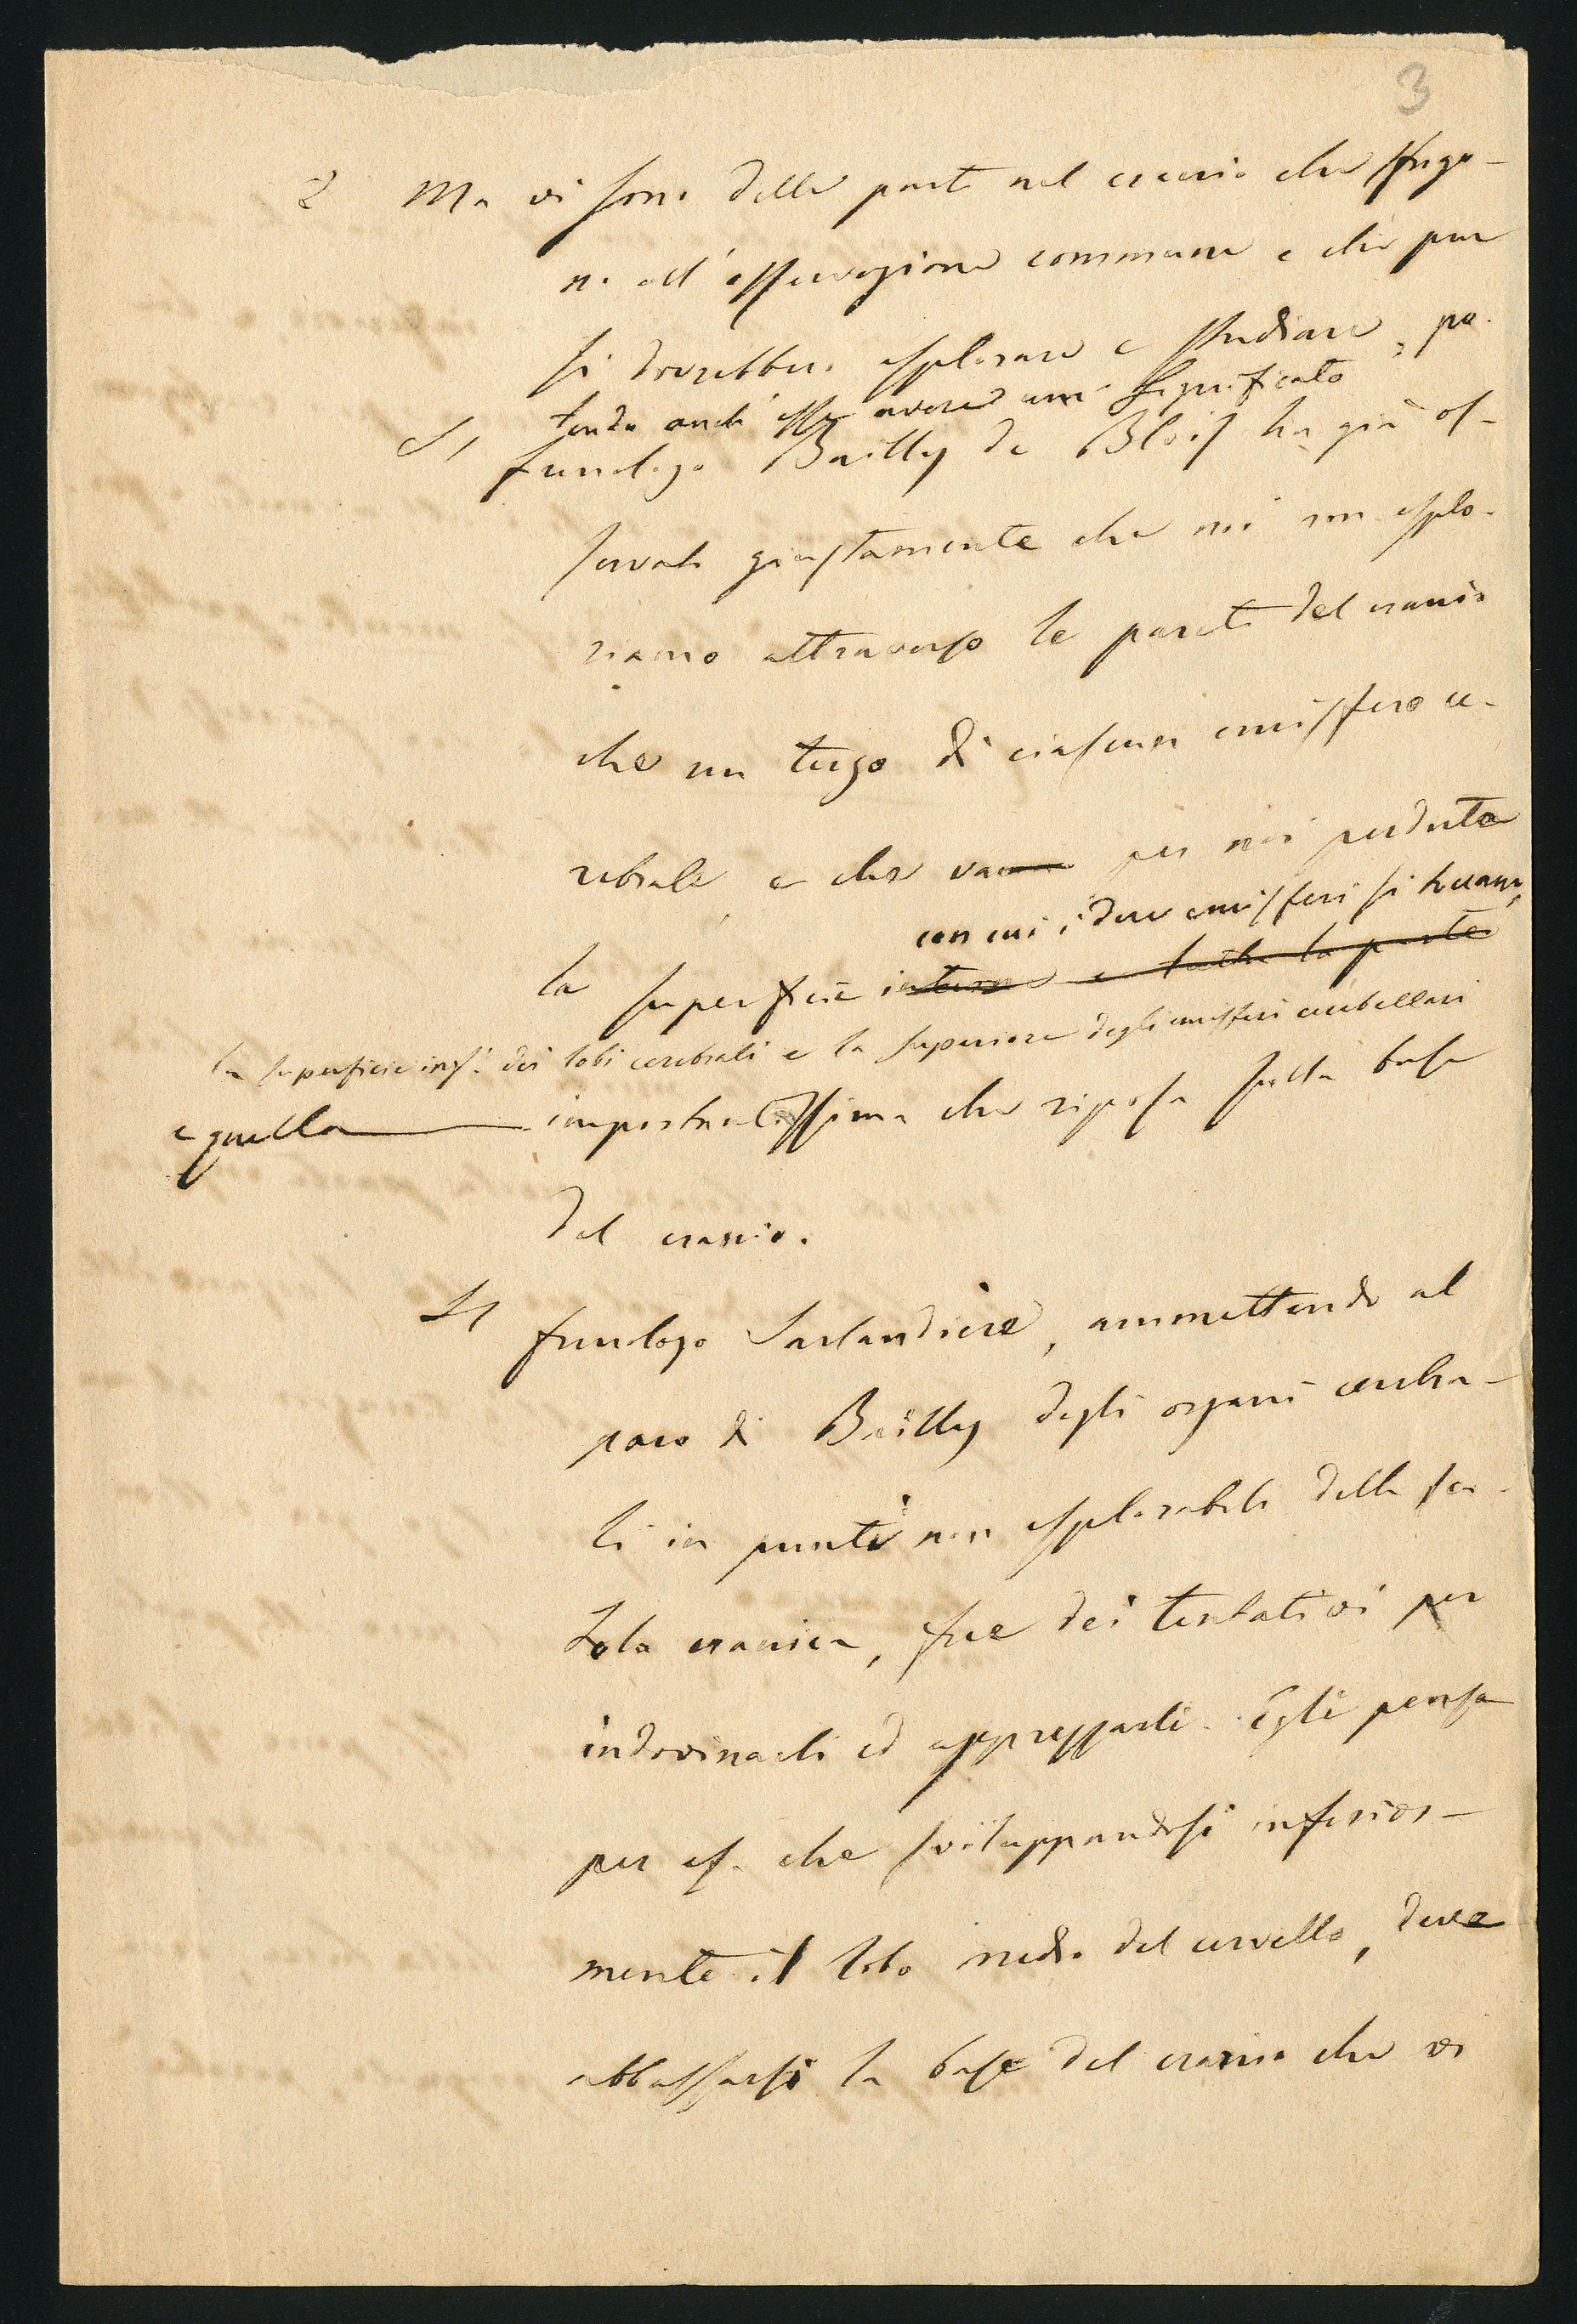 3
2 Ma vi sono delle parti nel cranio che sfugo-
no all'osservazione commune e che pur
si dovrebbero esplorare e studiare, po-
tendo anch'esse avere un significato
Il frenologo Bailly de Blois ha già os-
servato giustamente che noi non esplo-
riamo attraverso le pareti del cranio
che un terzo di ciascun emisfero ce-
rebrale, e che va per noi perduta
con cui i due emisferi si toccano,
la superficie interna e tutta la parte
la superficie inf. dei lobi cerebrali e la superiore degli emisferi cerebellari
e quella importantissima che riposa sulla base
del cranio.
Il frenologo Sarlandière, ammettendo al
paro di Bailly degli organi cerebra-
li in punti non esplorabili della sca-
tola cranica, fece dei tentativi per
indovinarli ed apprezzarli. Egli pensa
per es. che sviluppandosi inferior-
mente il lobo medio del cervello, deve
abbassarsi la base del cranio che vi